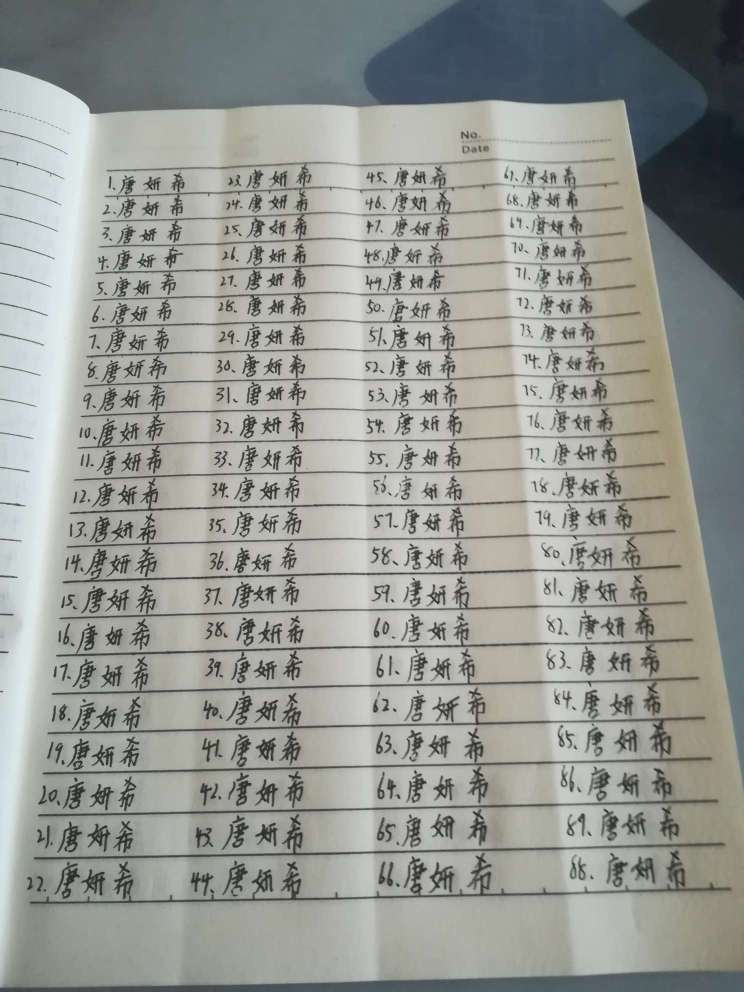 No.
Date
1、唐妍希
2、唐妍希
3、唐妍希
4、唐妍希
5、唐妍希
6、唐妍希
7、唐妍希
8、唐妍希
9、唐妍希
10、唐妍希
11、唐妍希
12、唐妍希
13、唐妍希
14、唐妍希
15、唐妍希
16、唐妍希
17、唐妍希
18、唐妍希
19、唐妍希
20、唐妍希
21、唐妍希
22、唐妍希
23、唐妍希
24、唐妍希
25、唐妍希
26、唐妍希
27、唐妍希
28、唐妍希
29、唐妍希
30、唐妍希
31、唐妍希
32、唐妍希
33、唐妍希
34、唐妍希
35、唐妍希
36、唐妍希
37、唐妍希
38、唐妍希
39、唐妍希
40、唐妍希
41、唐妍希
42、唐妍希
43、唐妍希
44、唐妍希
45、唐妍希
46、唐妍希
47、唐妍希
48、唐妍希
49、唐妍希
50、唐妍希
51、唐妍希
52、唐妍希
53、唐妍希
54、唐妍希
55、唐妍希
56、唐妍希
57、唐妍希
58、唐妍希
59、唐妍希
60、唐妍希
61、唐妍希
62、唐妍希
63、唐妍希
64、唐妍希
65、唐妍希
66、唐妍希
67、唐妍希
68、唐妍希
69、唐妍希
70、唐妍希
71、唐妍希
72、唐妍希
73、唐妍希
74、唐妍希
75、唐妍希
76、唐妍希
77、唐妍希
78、唐妍希
79、唐妍希
80、唐妍希
81、唐妍希
82、唐妍希
83、唐妍希
84、唐妍希
85、唐妍希
86、唐妍希
87、唐妍希
88、唐妍希